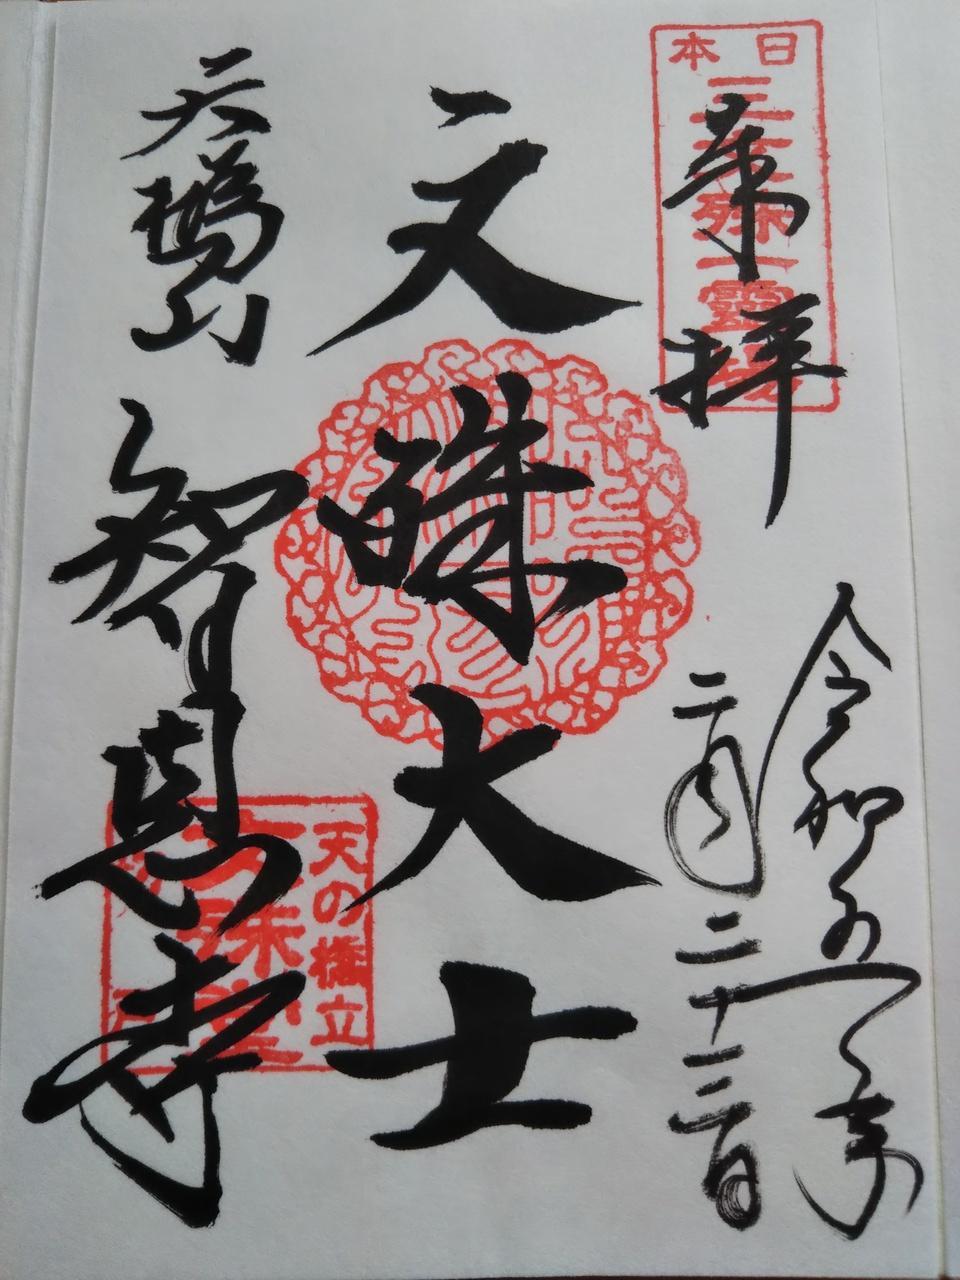 奉拝
日本三文殊一霊場
令和五年
二月二十三日
文殊大士
天橋山
智恩寺
天の橋立
文殊堂